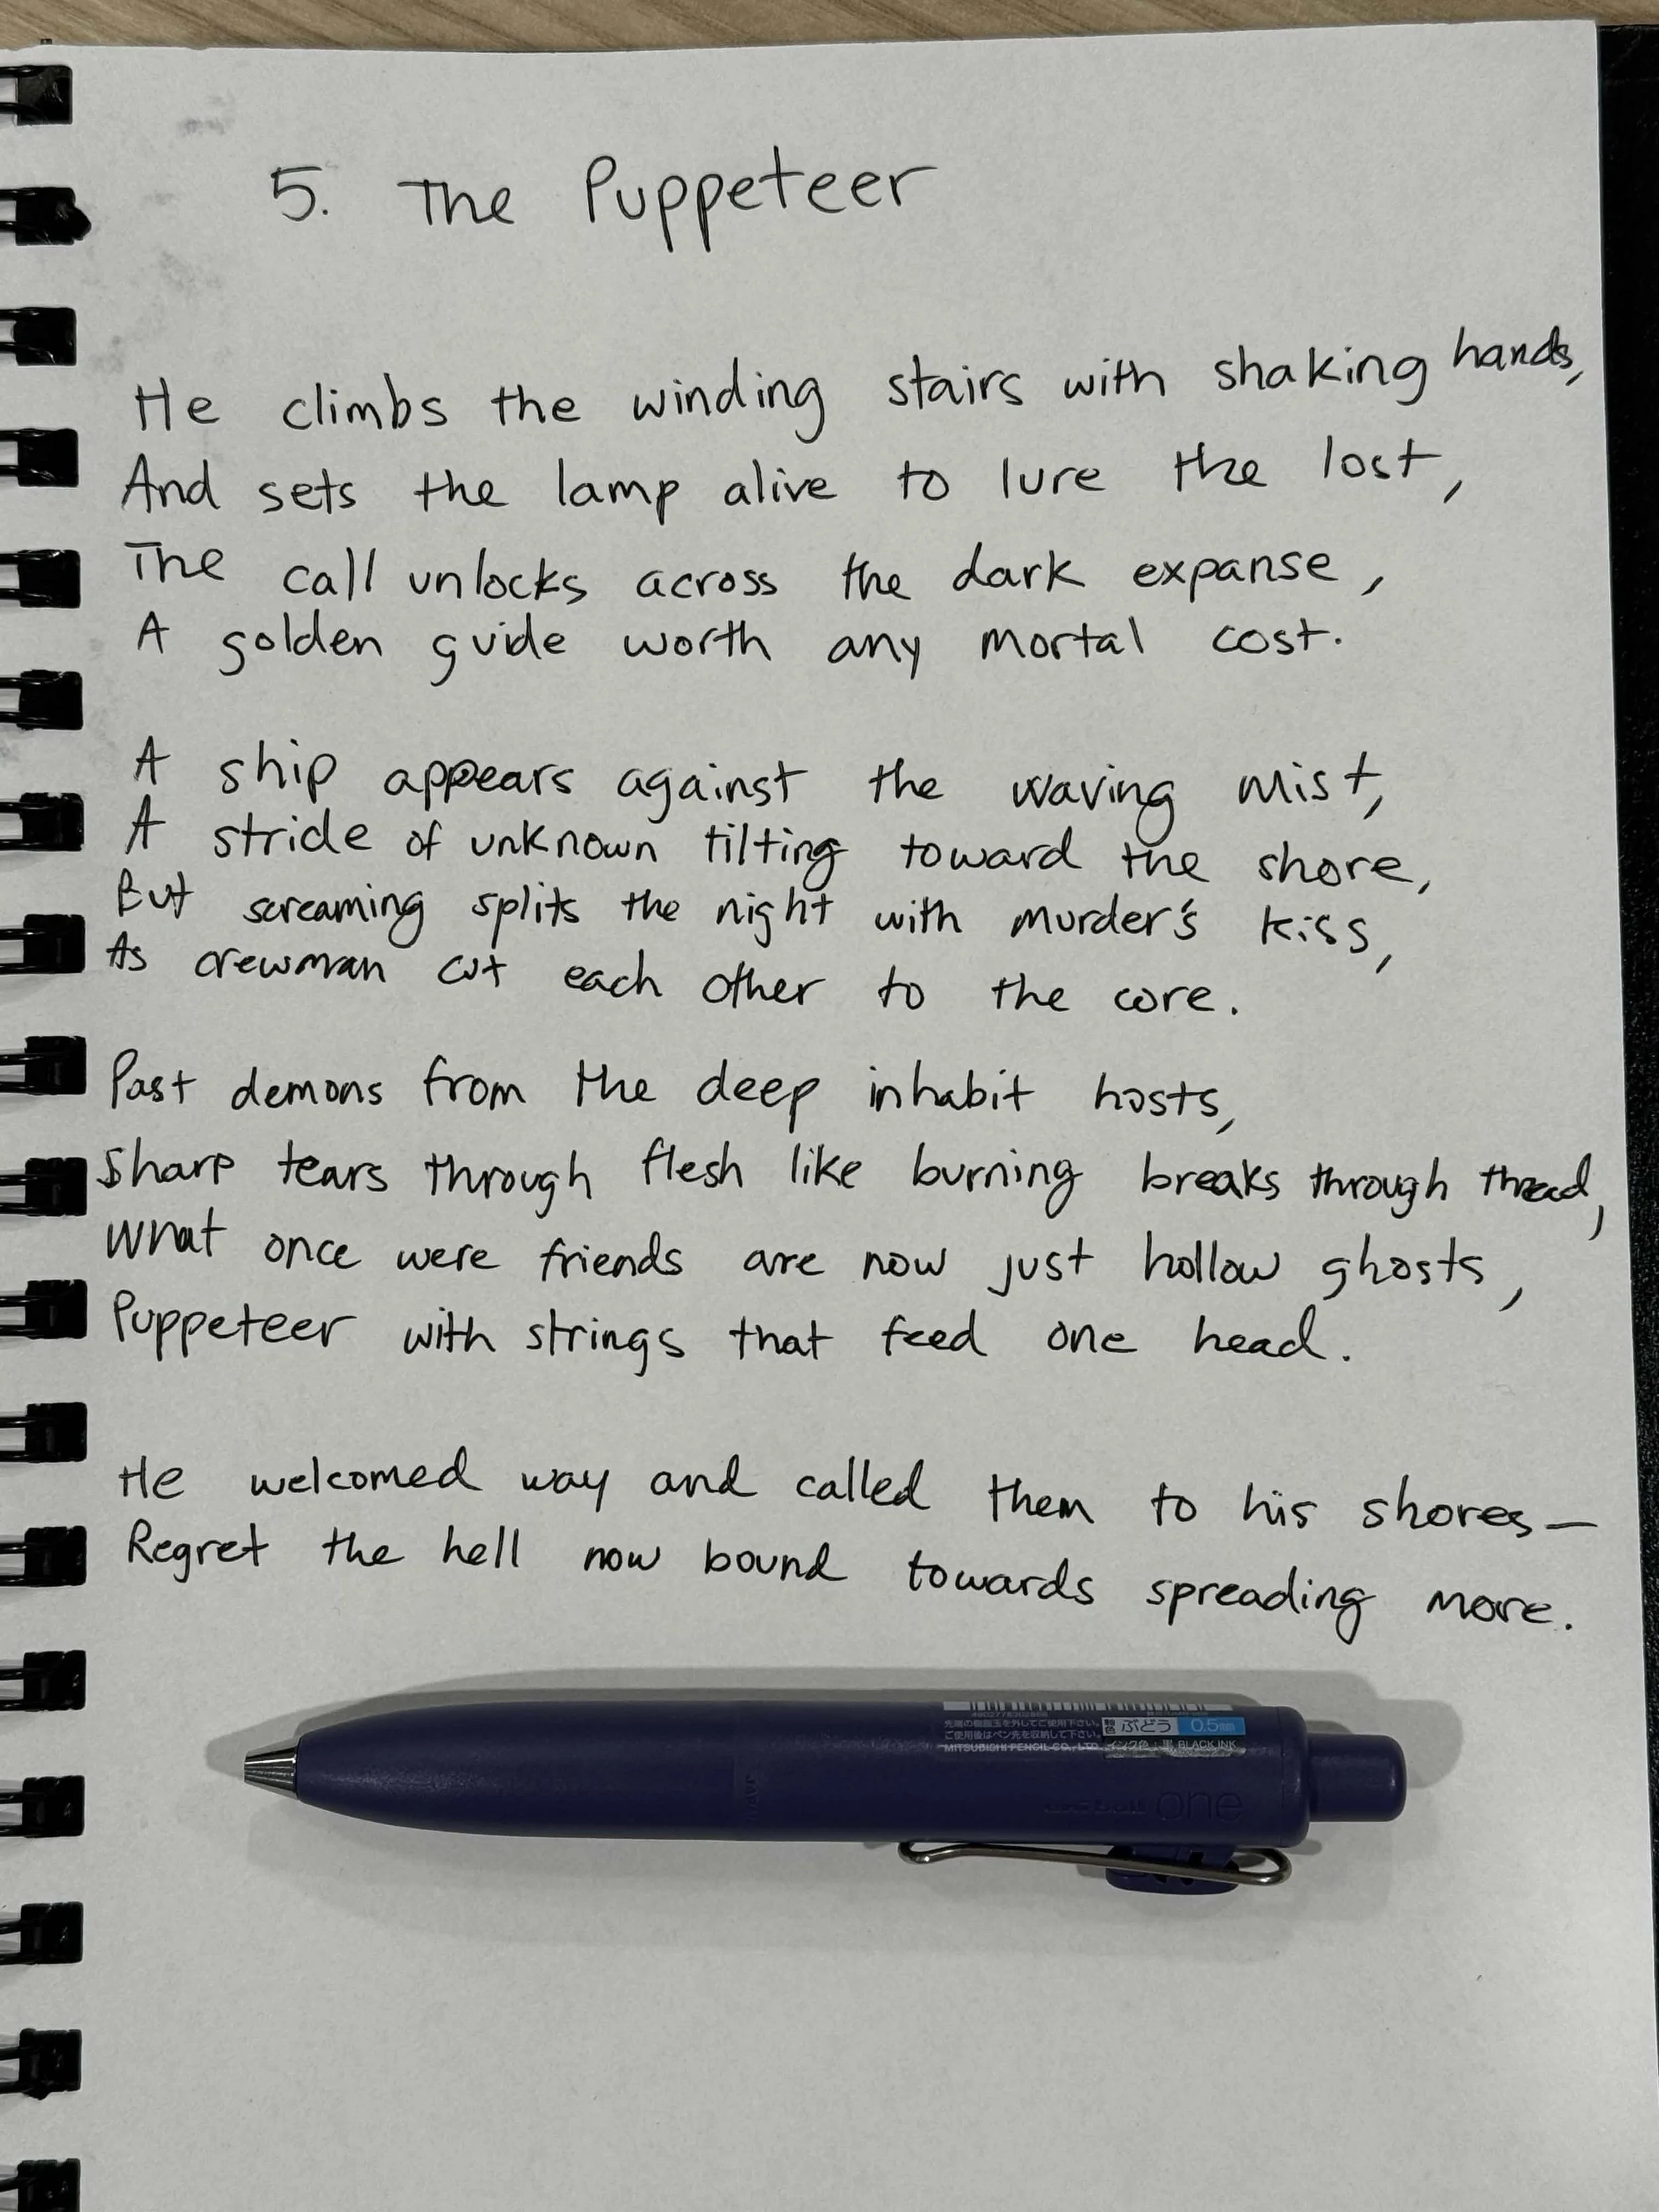 5. The Puppeteer
He climbs the winding stairs with shaking hands,
And sets the lamp alive to lure the lost,
The call unlocks across the dark expanse,
A golden guide worth any mortal cost.
A ship appears against the waving mist,
A stride of unknown tilting toward the shore,
But screaming splits the night with murder's kiss,
As crewman cut each other to the core.
Past demons from the deep inhabit hosts,
Sharp tears through flesh like burning breaks through thread,
What once were friends are now just hollow ghosts,
Puppeteer with strings that feed one head.
He welcomed way and called them to his shores—
Regret the hell now bound towards spreading more.
先端の樹脂玉を外してご使用下さい。 ぶどう 0.5mm
ご使用後はペン先を収納して下さい。
MITSUBISHI PENCIL CO., LTD. インク色:黒 BLACK INK
uni-ball one
JAPAN